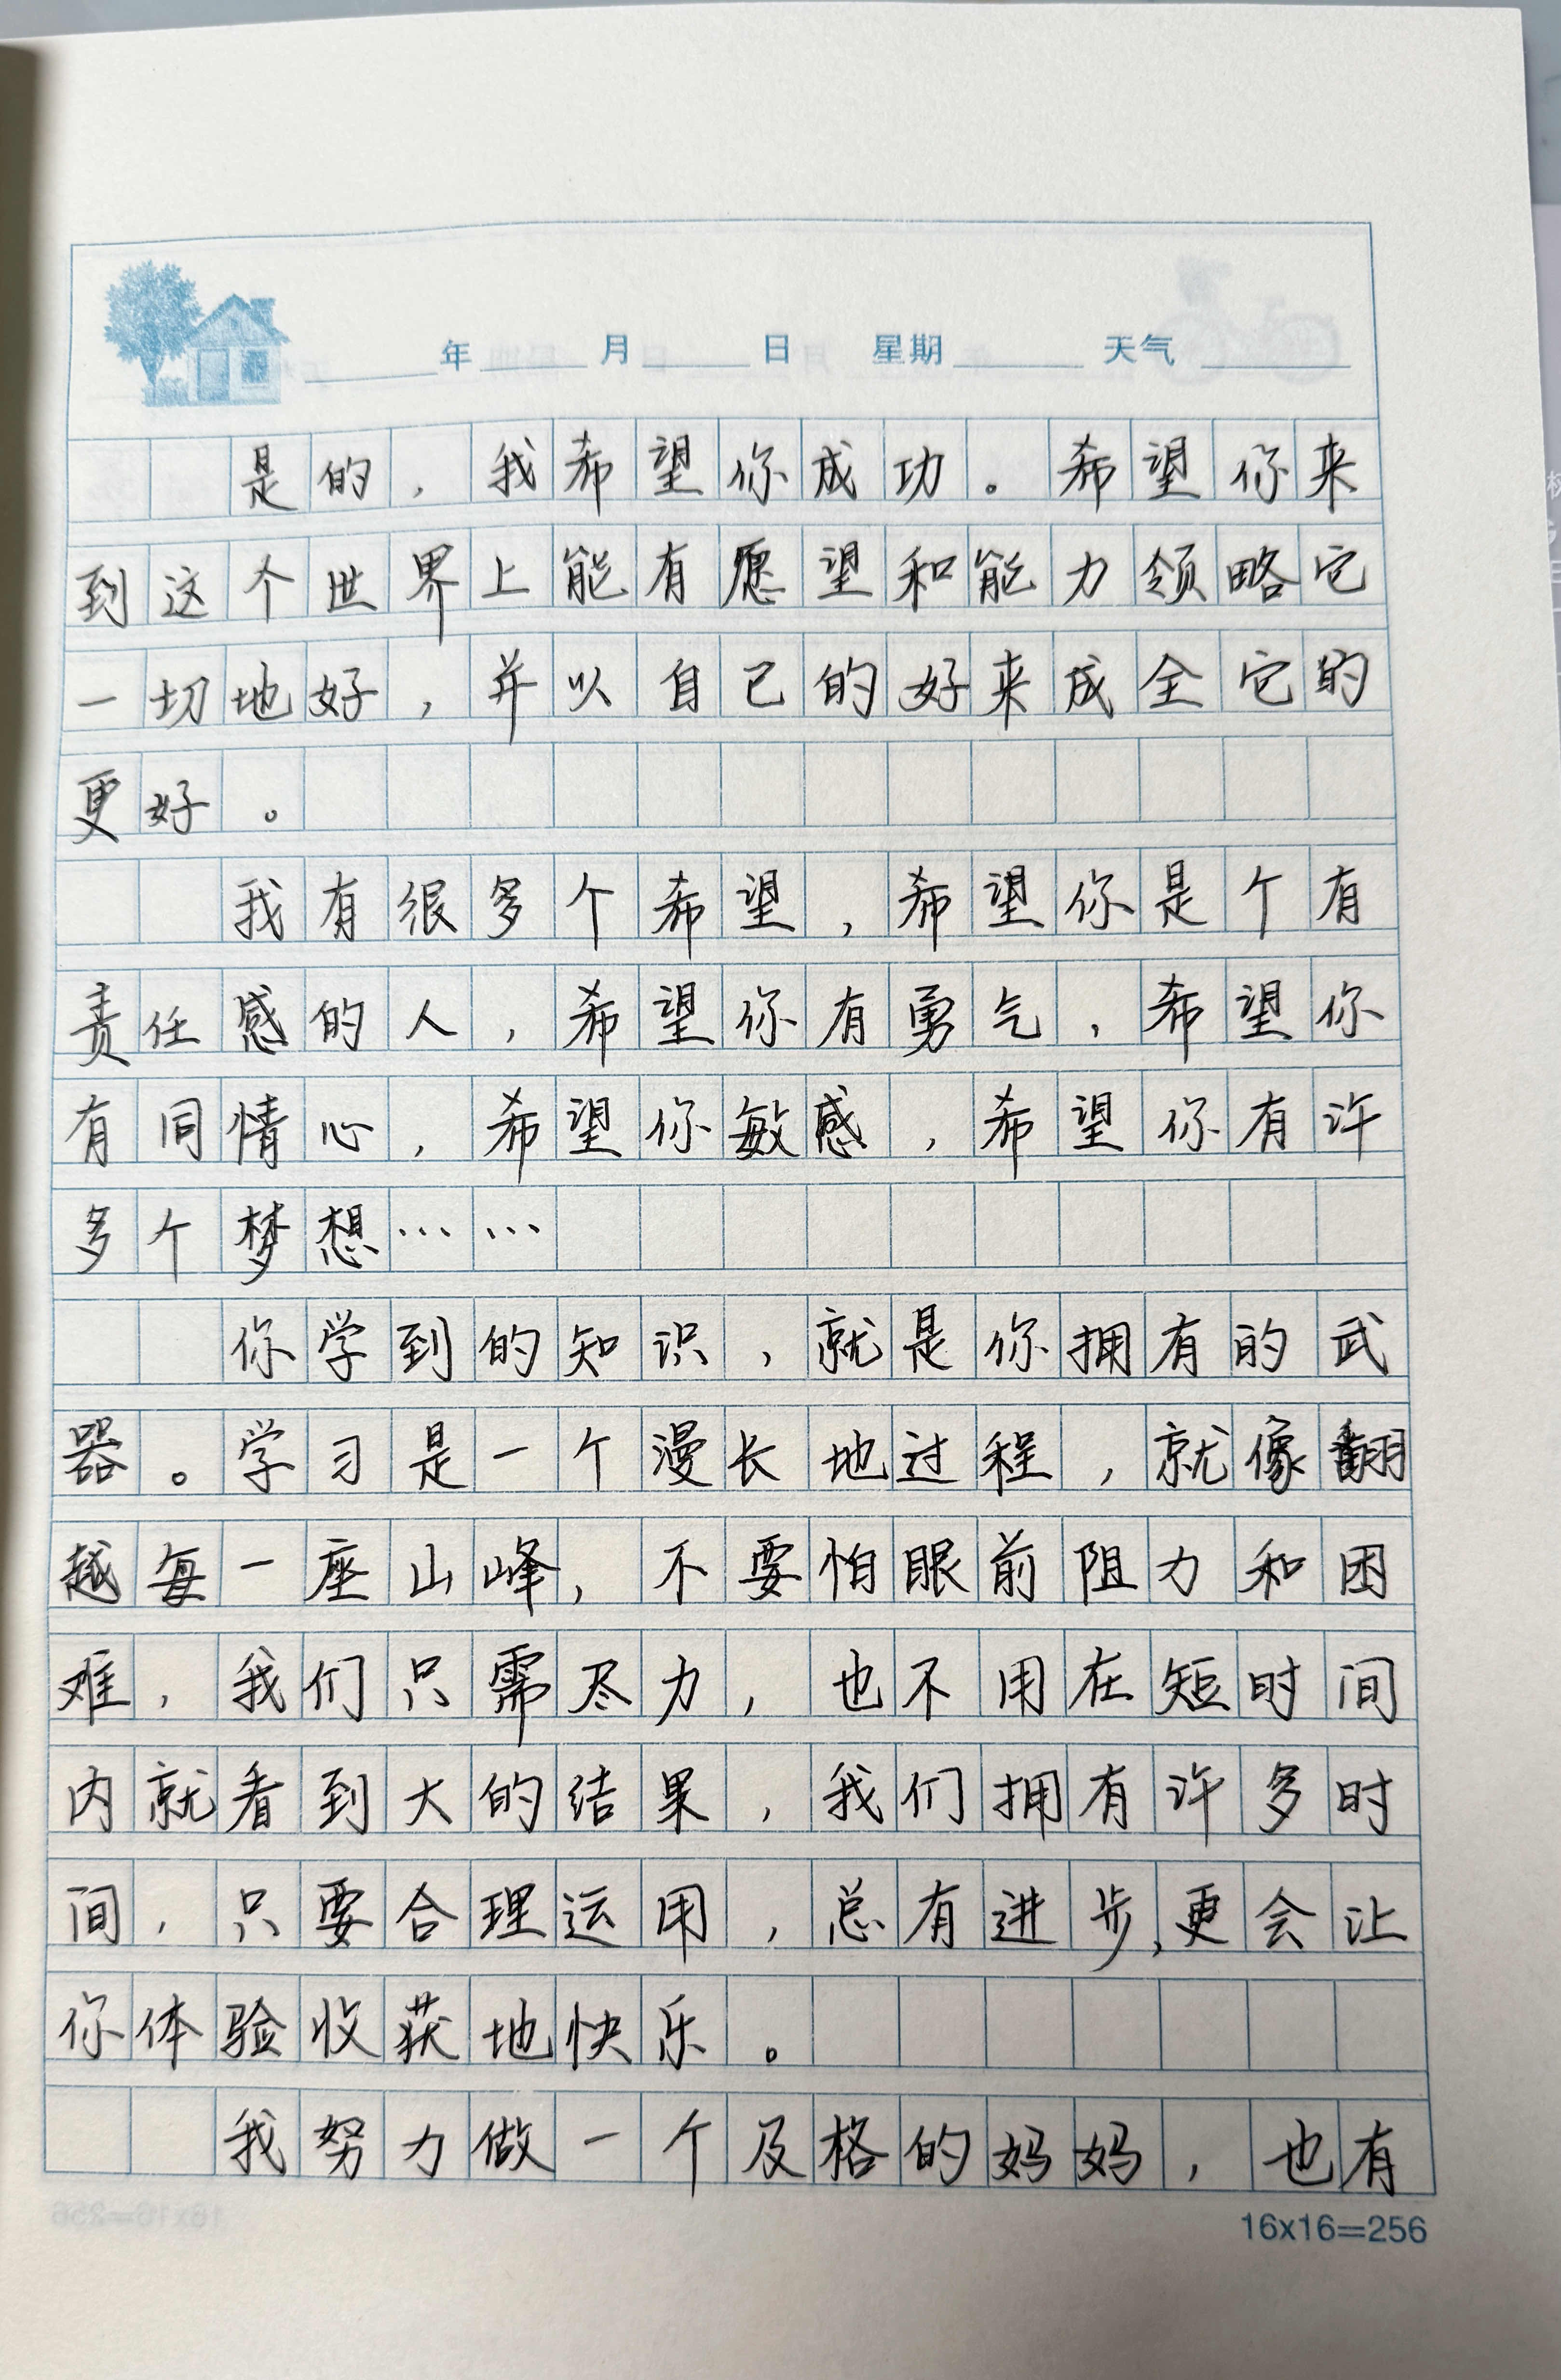 年 月 日 星期 天气
是的，我希望你成功。希望你来
到这个世界上能有愿望和能力领略它
一切地好，并以自己的好来成全它的
更好。
我有很多个希望，希望你是个有
责任感的人，希望你有勇气，希望你
有同情心，希望你敏感，希望你有许
多个梦想……
你学到的知识，就是你拥有的武
器。学习是一个漫长地过程，就像翻
越每一座山峰，不要怕眼前阻力和困
难，我们只需尽力，也不用在短时间
内就看到大的结果，我们拥有许多时
间，只要合理运用，总有进步，更会让
你体验收获地快乐。
我努力做一个及格的妈妈，也有
16x16=256